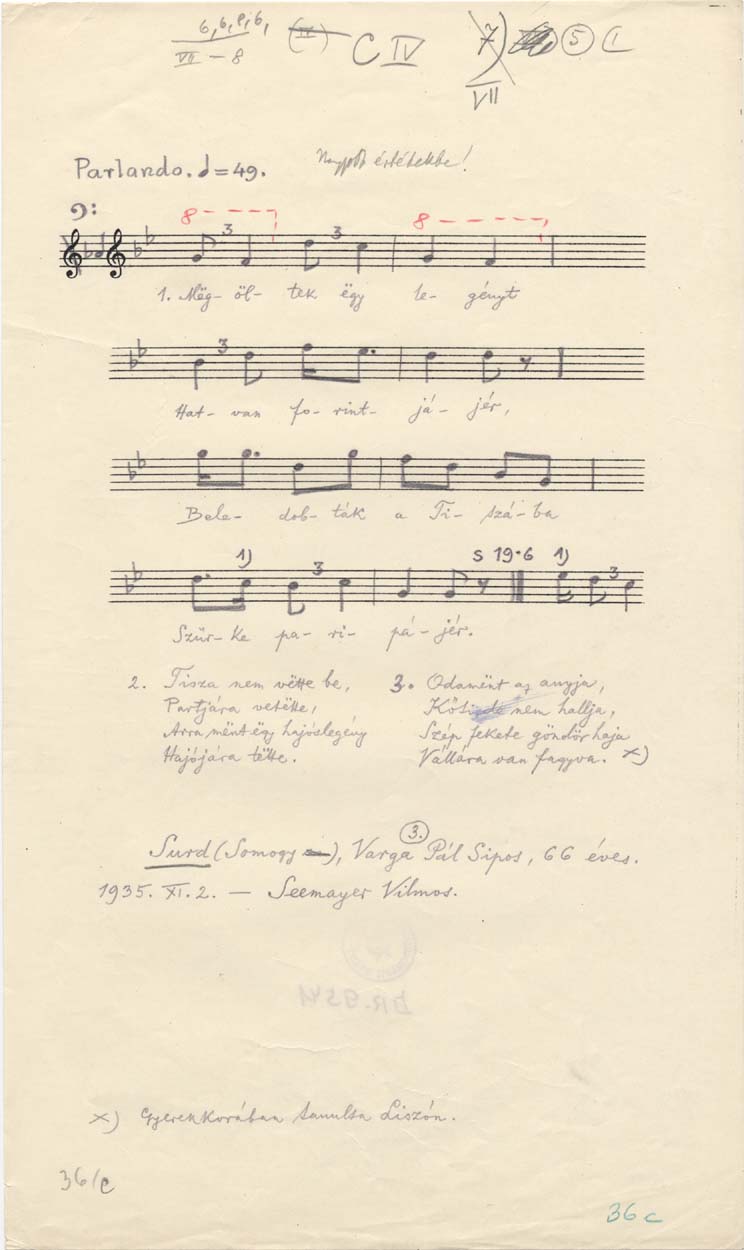 6, 6, 8, 6,
VII – 8
(IV) C IV 7) 5 1
VII
Parlando. ♩=49. Nagyobb értékekbe!
8 8
3 3
1. Mëg- öl- tek ëgy le- gényt
3
Hat- van fo- rint- já- jér,
Bele- dob- ták a Ti- szá- ba
1) 3 s 19·6 1) 3
Szür- ke pa- ri- pá- jér.
2. Tisza nem vëtte be,
Partjára vetëtte,
Arra mënt ëgy hajóslegény
Hajójára tëtte.
3. Odamënt az anyja,
nem hallja,
Szép fekete göndör haja
Vállára van fagyva. x)
3.
Surd (Somogy), Varga Pál Sipos, 66 éves.
1935. XI. 2. — Seemayer Vilmos.
BR. 9541
x) Gyerekkorában tanulta Liszón.
36/c
36 c